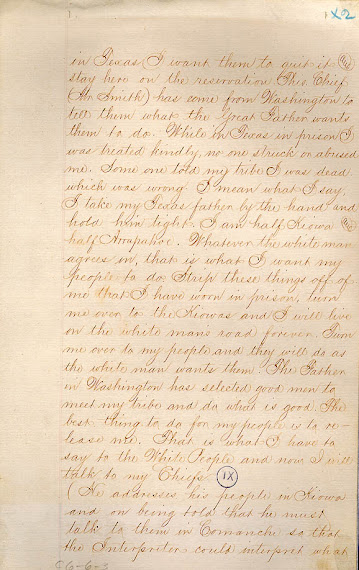 1X2
in Texas I want them to quit it &
stay here on the reservation This Chief
(Mr Smith) has come from Washington to
tell them what the Great Father wants
them to do. While in Texas in prison I
was treated kindly, no one struck or abused
me. Some one told my tribe I was dead
which was wrong I mean what I say,
I take my Texas father by the hand and
hold him tight. I am half Kiowa
half Arrapahoe. Whatever the white man
agrees in, that is what I want my
people to do Strip these things off of
me that I have worn in prison, turn
me over to the Kiowas and I will live
on the white mans road forever. Turn
me over to my people and they will do as
the white man wants them. The Father
in Washington has selected good men to
meet my tribe and do what is good. The
best thing to do for my people is to re-
lease me. That is what I have to
say to the White People and now I will
talk to my Chiefs. IX
(He addresses his people in Kiowa
and on being told that he must
talk to them in Comanche so that
the Interpreter could interpret what